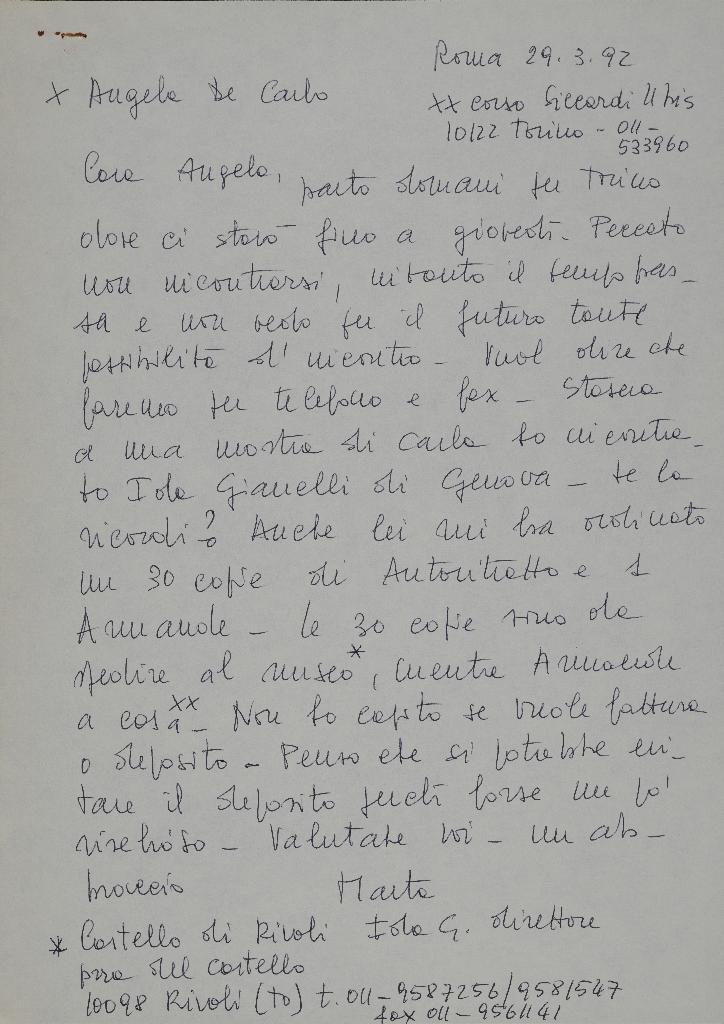 Roma 29.3.92
x Angela De Carlo
xx corso Siccardi 11 bis
10122 Torino - 011-
533960
Cara Angela, parto domani per Torino
dove ci starò fino a giovedì. Peccato
non incontrarsi, intanto il tempo pas-
sa e non vedo per il futuro tante
possibilità d'incontro - Vuol dire che
faremo per telefono e fax - Stasera
a una mostra di Carla ho incontra-
to Ida Gianelli di Genova - te la
ricordi? Anche lei mi ha ordinato
un 30 copie di Autoritratto e 1
Armande - le 30 copie sono da
spedire al museo*, mentre Armande
a casa xx - Non ho capito se vuole fattura
o deposito - Penso che si potrebbe evi-
tare il deposito perché forse un po'
rischioso - Valutate voi - un ab-
braccio Marta
* Castello di Rivoli Ida G. direttore
pzza del castello
10098 Rivoli (to) t. 011-9587256/9581547
fax 011-9561141